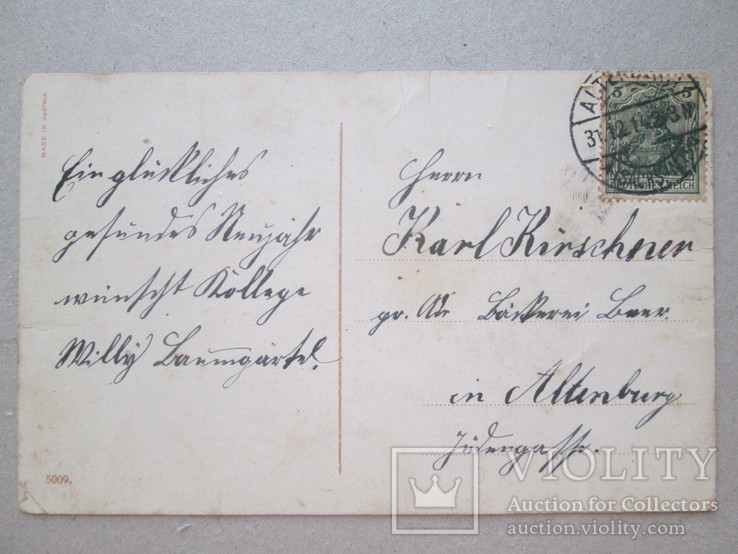 MADE IN AUSTRIA
Ein glückliches
gesundes Neujahr
wünscht Kollege
Willy Baumgärtel.
5009.
5 5
31.12.14
REICH
Herrn
Karl Kirschner
pr. Adr. Bäckerei Beer
in Altenburg
Jüdengasse.
VIOLITY
Auction for Collectors
auction.violity.com